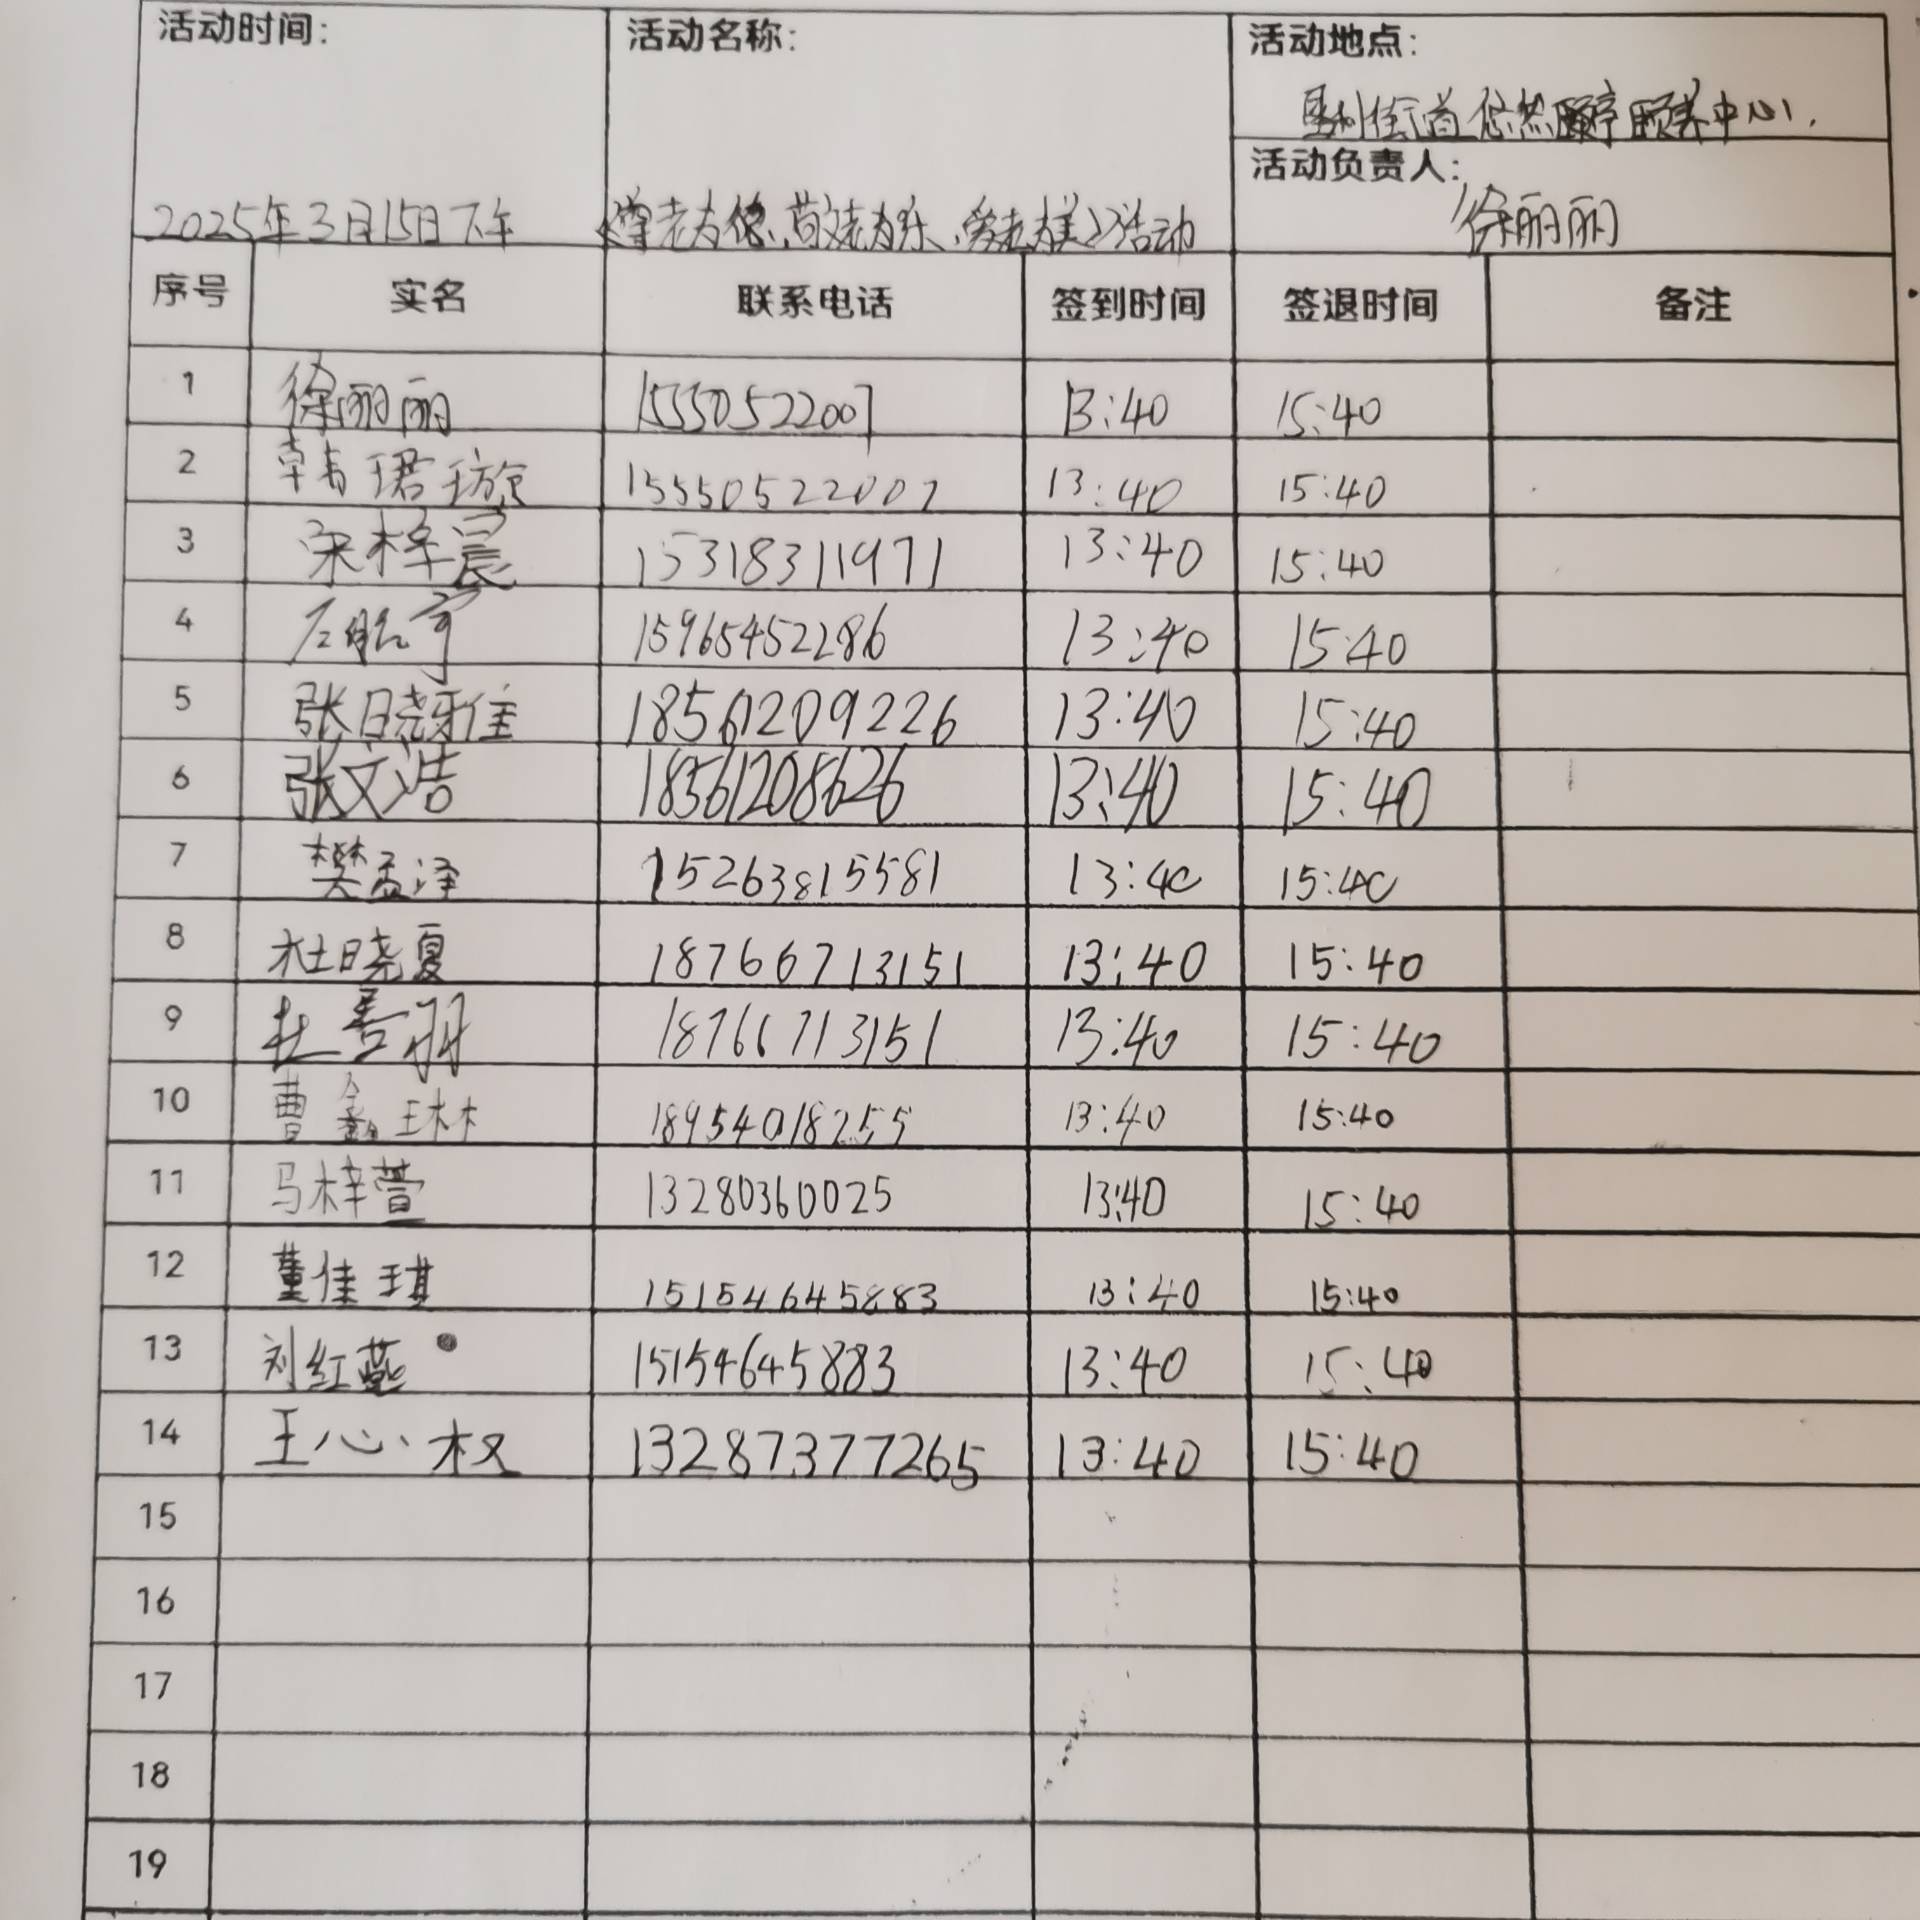 活动时间: 活动名称: 活动地点:
街首悠然颐亭颐养中心
活动负责人:
2025年3月15日下午 《尊老为德、敬老为乐、爱老为美》活动 徐丽丽
序号 实名 联系电话 签到时间 签退时间 备注
1 徐丽丽 15550522007 13:40 15:40
2 韩珺璇 15550522007 13:40 15:40
3 宋梓晨 15318311971 13:40 15:40
4 左航宇 15965452286 13:40 15:40
5 张晓雅 18561209226 13:40 15:40
6 张文浩 18561208626 13:40 15:40
7 樊孟泽 15263815581 13:40 15:40
8 杜晓夏 18766713151 13:40 15:40
9 杜善羽 18766713151 13:40 15:40
10 曹鑫琳 18954018255 13:40 15:40
11 马梓萱 13280360025 13:40 15:40
12 董佳琪 15154645883 13:40 15:40
13 刘红燕 15154645883 13:40 15:40
14 王心权 13287377265 13:40 15:40
15
16
17
18
19